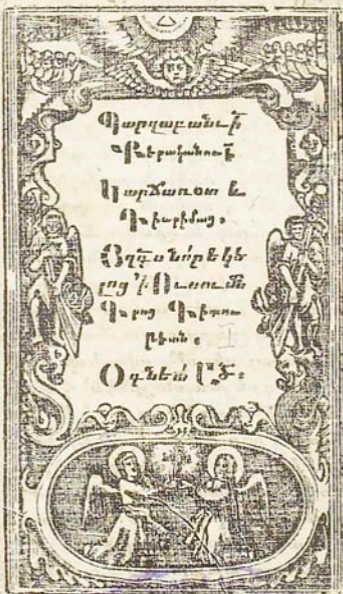 Պարզաբանուի՟
Քերականուե՟
Կարճառօտ և
Դիւրիմաց։
նորեկե
լոց ՚ի Ուսումն
Գրոց Գիտու
թեան։
Օգնեա՛ Ա՟Ծ։